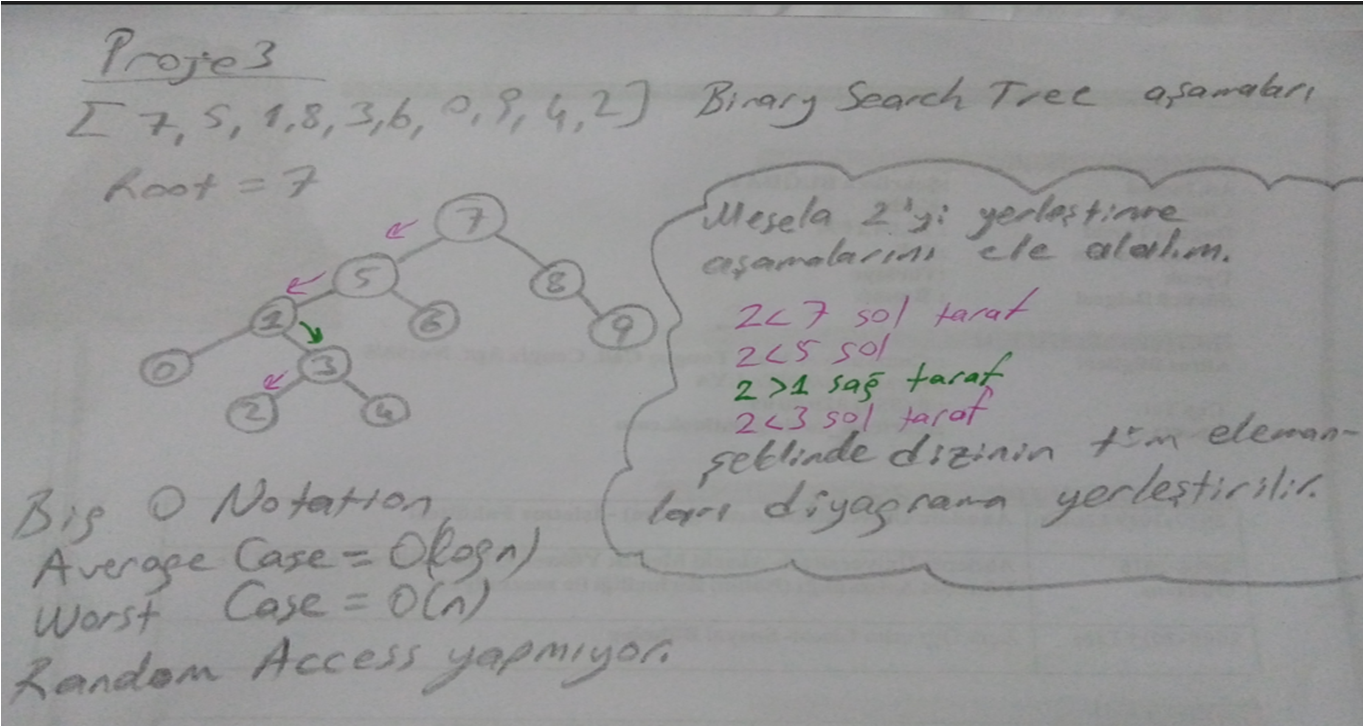 Proje 3
[7, 5, 1, 8, 3, 6, 0, 9, 4, 2] Binary Search Tree aşamaları
Root = 7
7
5
8
1
6
9
0
3
2
4
Mesela 2'yi yerleştirme
aşamalarını ele alalım.
2<7 sol taraf
2<5 sol
2>1 sağ taraf
2<3 sol taraf
şeklinde dizinin tüm eleman-
ları diyagrama yerleştirilir.
Big O Notation
Average Case = O(logn)
Worst Case = O(n)
Random Access yapmıyor.